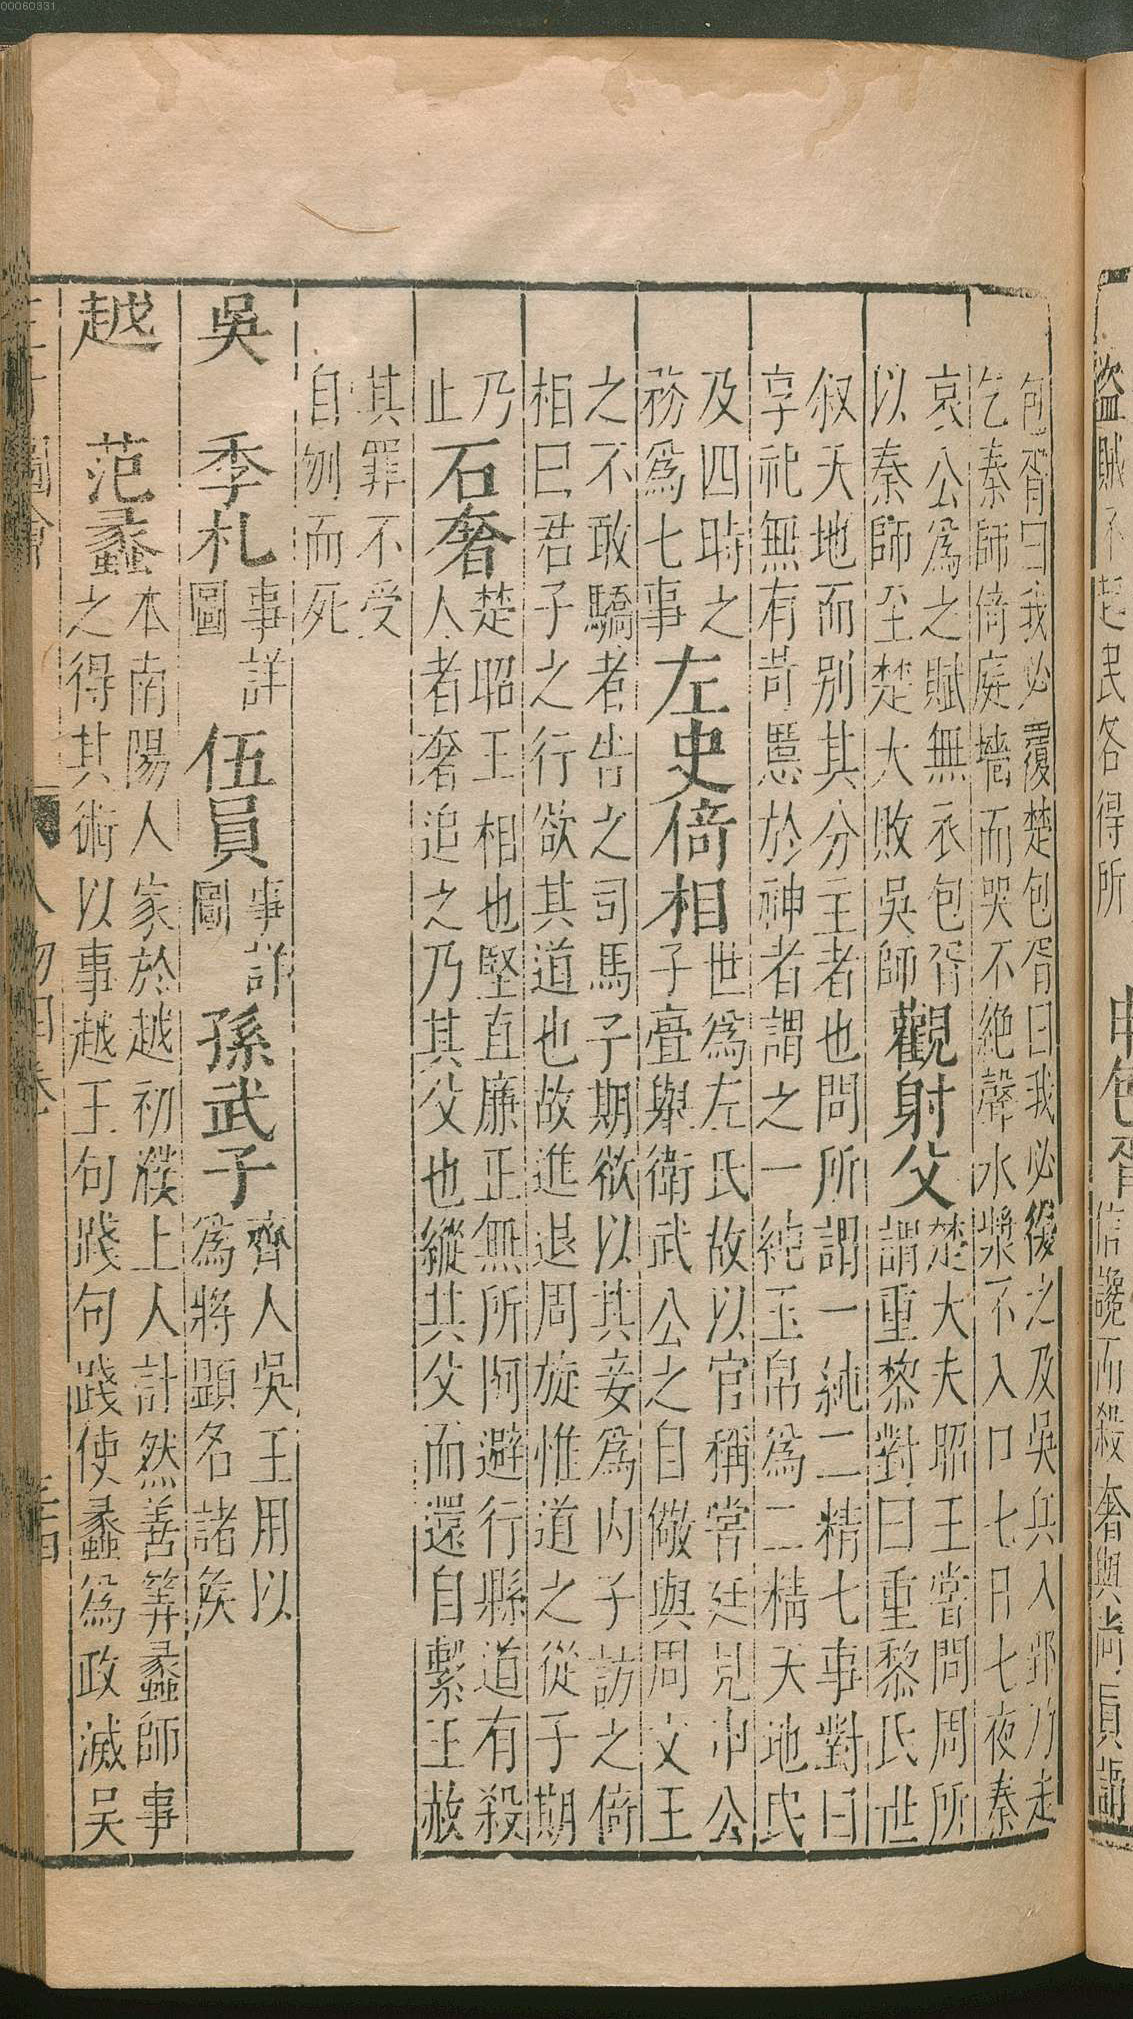 包胥曰我必覆楚包胥曰我必復之及吳兵入郢乃走
乞秦師倚庭墻而哭不絕聲水漿不入口七日七夜秦
哀公爲之賦無衣包胥
以秦師至楚大敗吳師
觀射父
楚大夫昭王嘗問周所
謂重黎對曰重黎氏世
叙天地而别其分主者也問所謂一純二精七事對曰
享祀無有苛慝於神者謂之一純玉帛爲二精天地民
及四時之
務爲七事
左史倚相
世爲左氏故以官稱嘗廷見申公
子亹舉衛武公之自儆與周文王
之不敢驕者告之司馬子期欲以其妾爲内子訪之倚
相曰君子之行欲其道也故進退周旋惟道之從子期
乃
止
石奢
楚昭王相也堅直廉正無所阿避行縣道有殺
人者奢追之乃其父也縱其父而還自繫王赦
其罪不受
自刎而死
吳
季札
事詳
圖
伍員
事詳
圖
孫武子
齊人吳王用以
爲將顯名諸矦
越
范蠡
本南陽人家於越初濮上人計然善筭蠡師事
之得其術以事越王句踐句踐使蠡爲政滅吴
圖會
人物四卷
盜賊不起民各得所
申包胥
信讒而殺奢與尚員
00060331